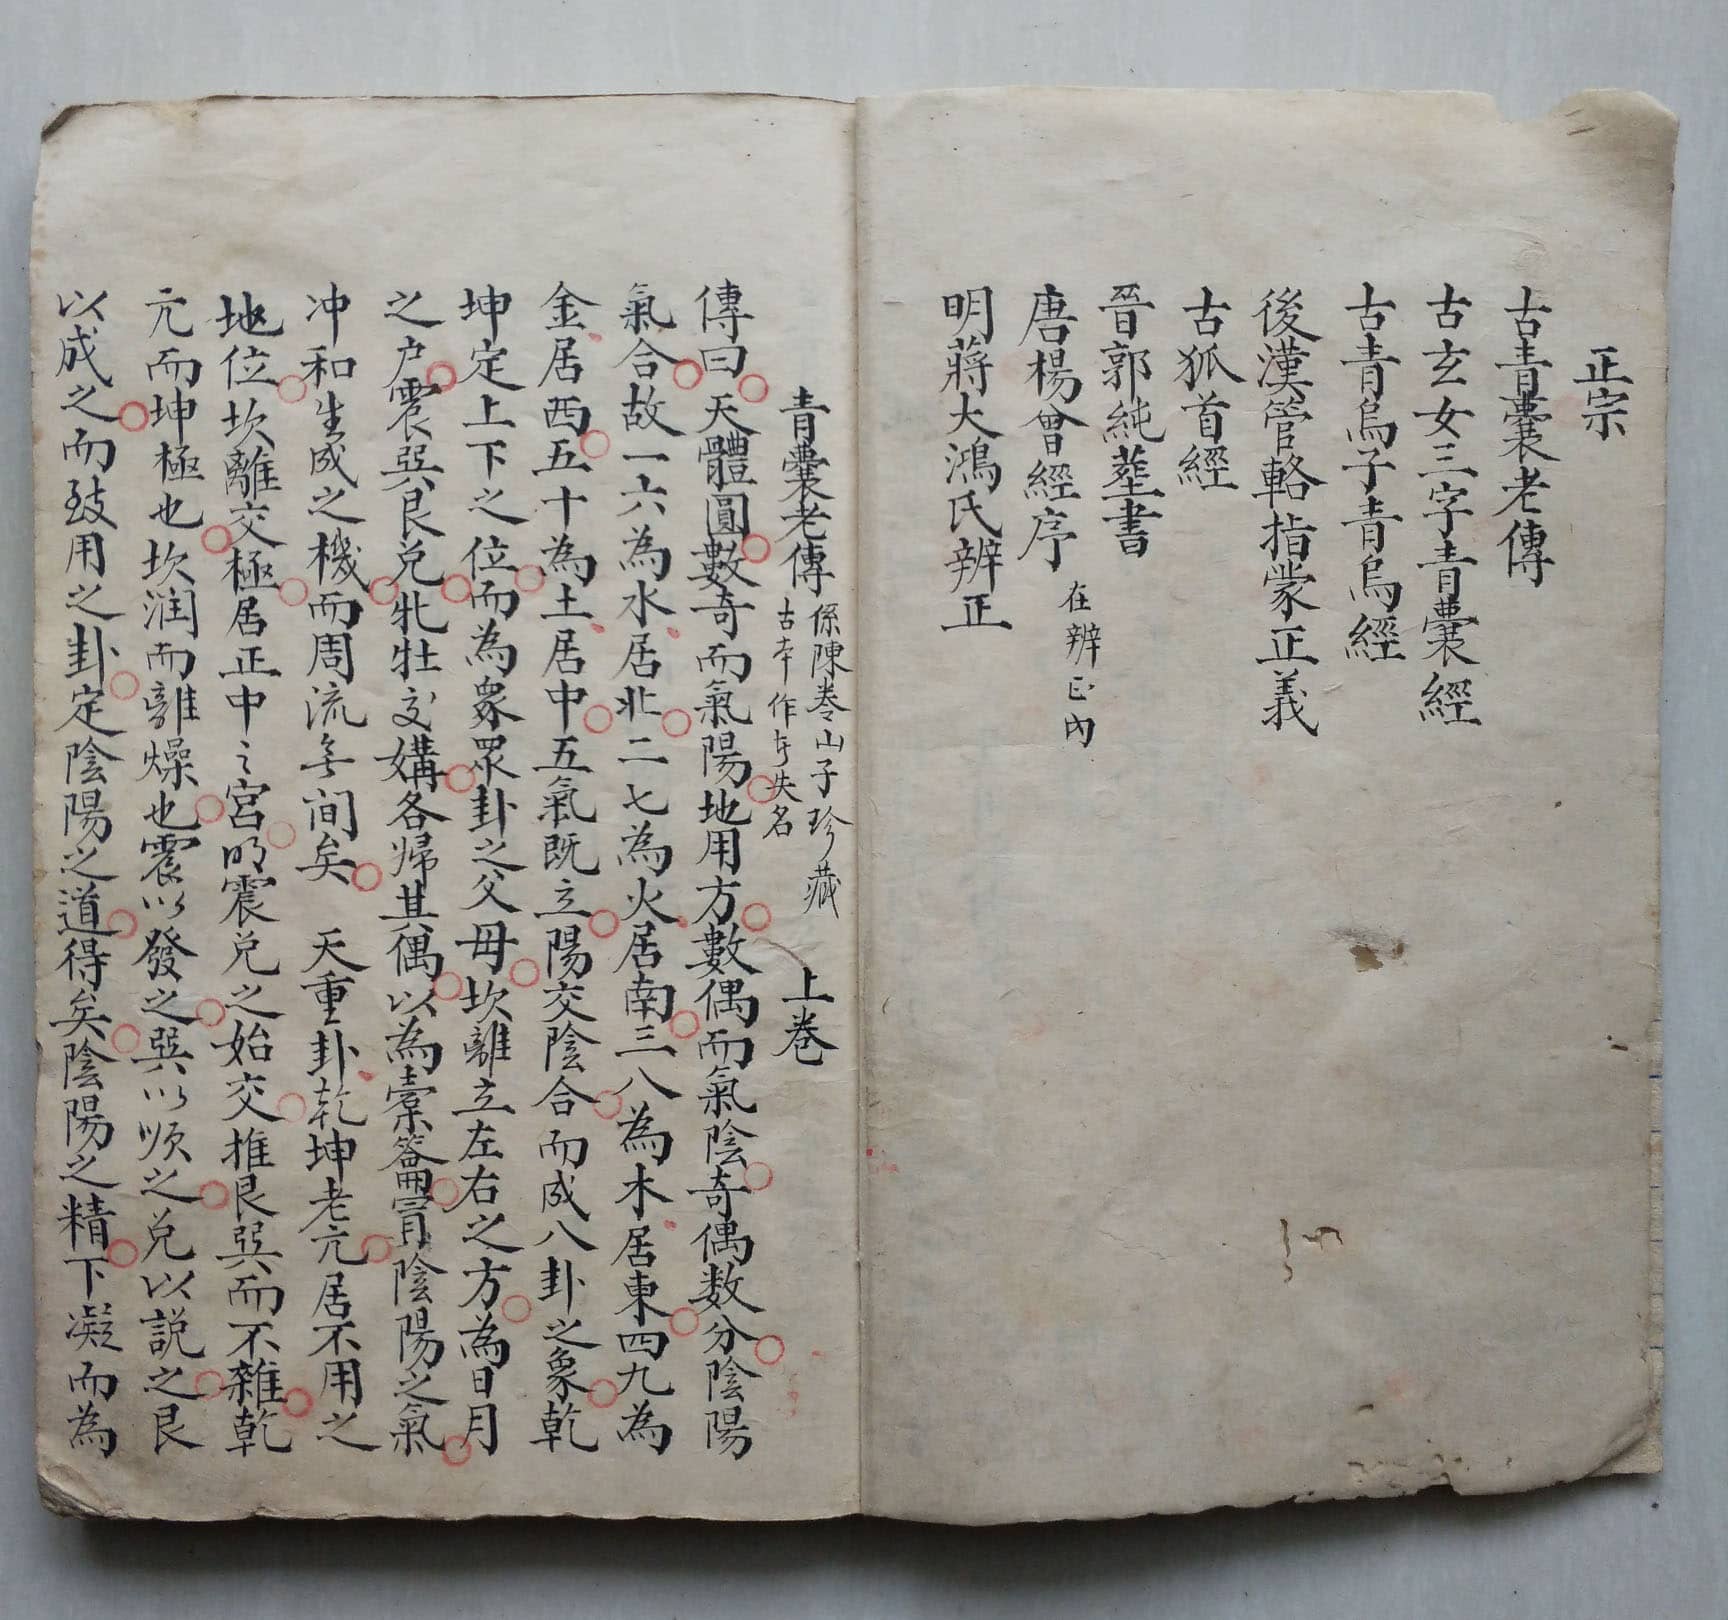 正宗
古青囊老傳
古玄女三字青囊經
古青烏子青烏經
後漢管輅指蒙正義
古狐首經
晉郭純塟書
唐楊曾經序 在辨正内
明蔣大鴻氏辨正
青囊老傳 係陳巻山子珍藏 古本作者失名 上巻
傳曰天體圓數奇而氣陽地用方數偶而氣陰奇偶数分陰陽
氣合故一六為水居北二七為火居南三八為木居東四九為
金居西五十為土居中五氣既立陽交陰合而成八卦之象乾
坤定上下之位而為眾卦之父母坎離立左右之方為日月
之户震巽艮兑牝牡交媾各歸其偶以為橐籥陰陽之氣
冲和生成之機而周流無间矣 天重卦乾坤老亢居不用之
地位坎離交極居正中之宮明震兑之始交推艮巽而不雜乾
亢而坤極也坎润而離燥也震以發之巽以順之兑以説之艮
以成之而致用之卦定陰陽之道得矣陰陽之精下凝而為